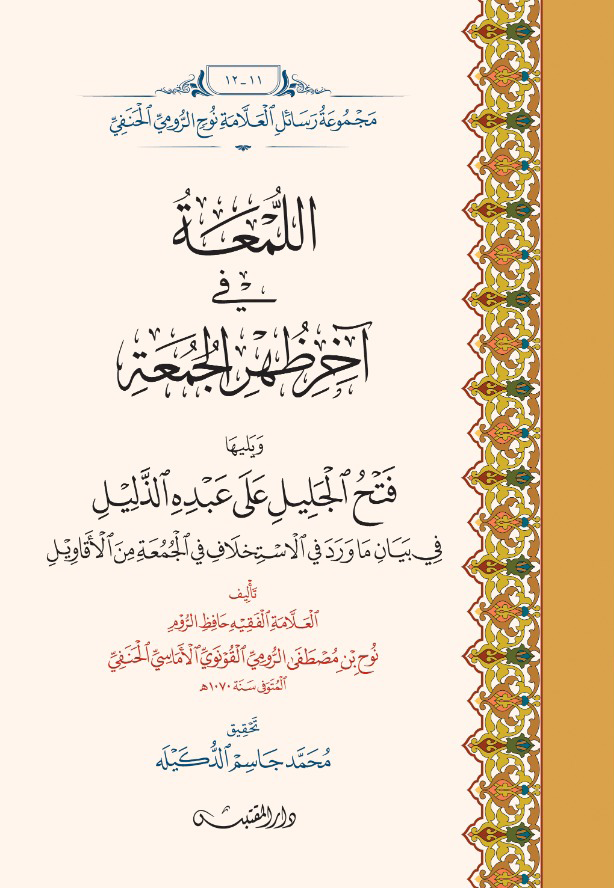 ١١-١٢
مَجْمُوعَةُ رَسَائِلِ الْعَلَّامَةِ نُوحٍ الرُّومِيِّ الْحَنَفِيِّ
اللُّمْعَةُ
فِي
آخِرِ ظُهْرِ الْجُمُعَةِ
وَيَلِيهَا
فَتْحُ الْجَلِيلِ عَلَى عَبْدِهِ الذَّلِيْلِ
فِي بَيَانِ مَا وَرَدَ فِي الْاسْتِخْلَافِ فِي الْجُمُعَةِ مِنَ الْأَقَاوِيْلِ
تَأْلِيف
الْعَلَّامَةِ الْفَقِيْهِ حَافِظِ الرُّوْمِ
نُوحِ بْنِ مُصْطَفَى الرُّومِيِّ الْقُوْنَوِيِّ الْأَمَاسِيِّ الْحَنَفِيِّ
الْمُتَوَفَّى سَنَة ١٠٧٠هـ
تَحْقِيْق
مُحَمَّد جَاسِم الدُّكَيْلَه
دار المقتبس